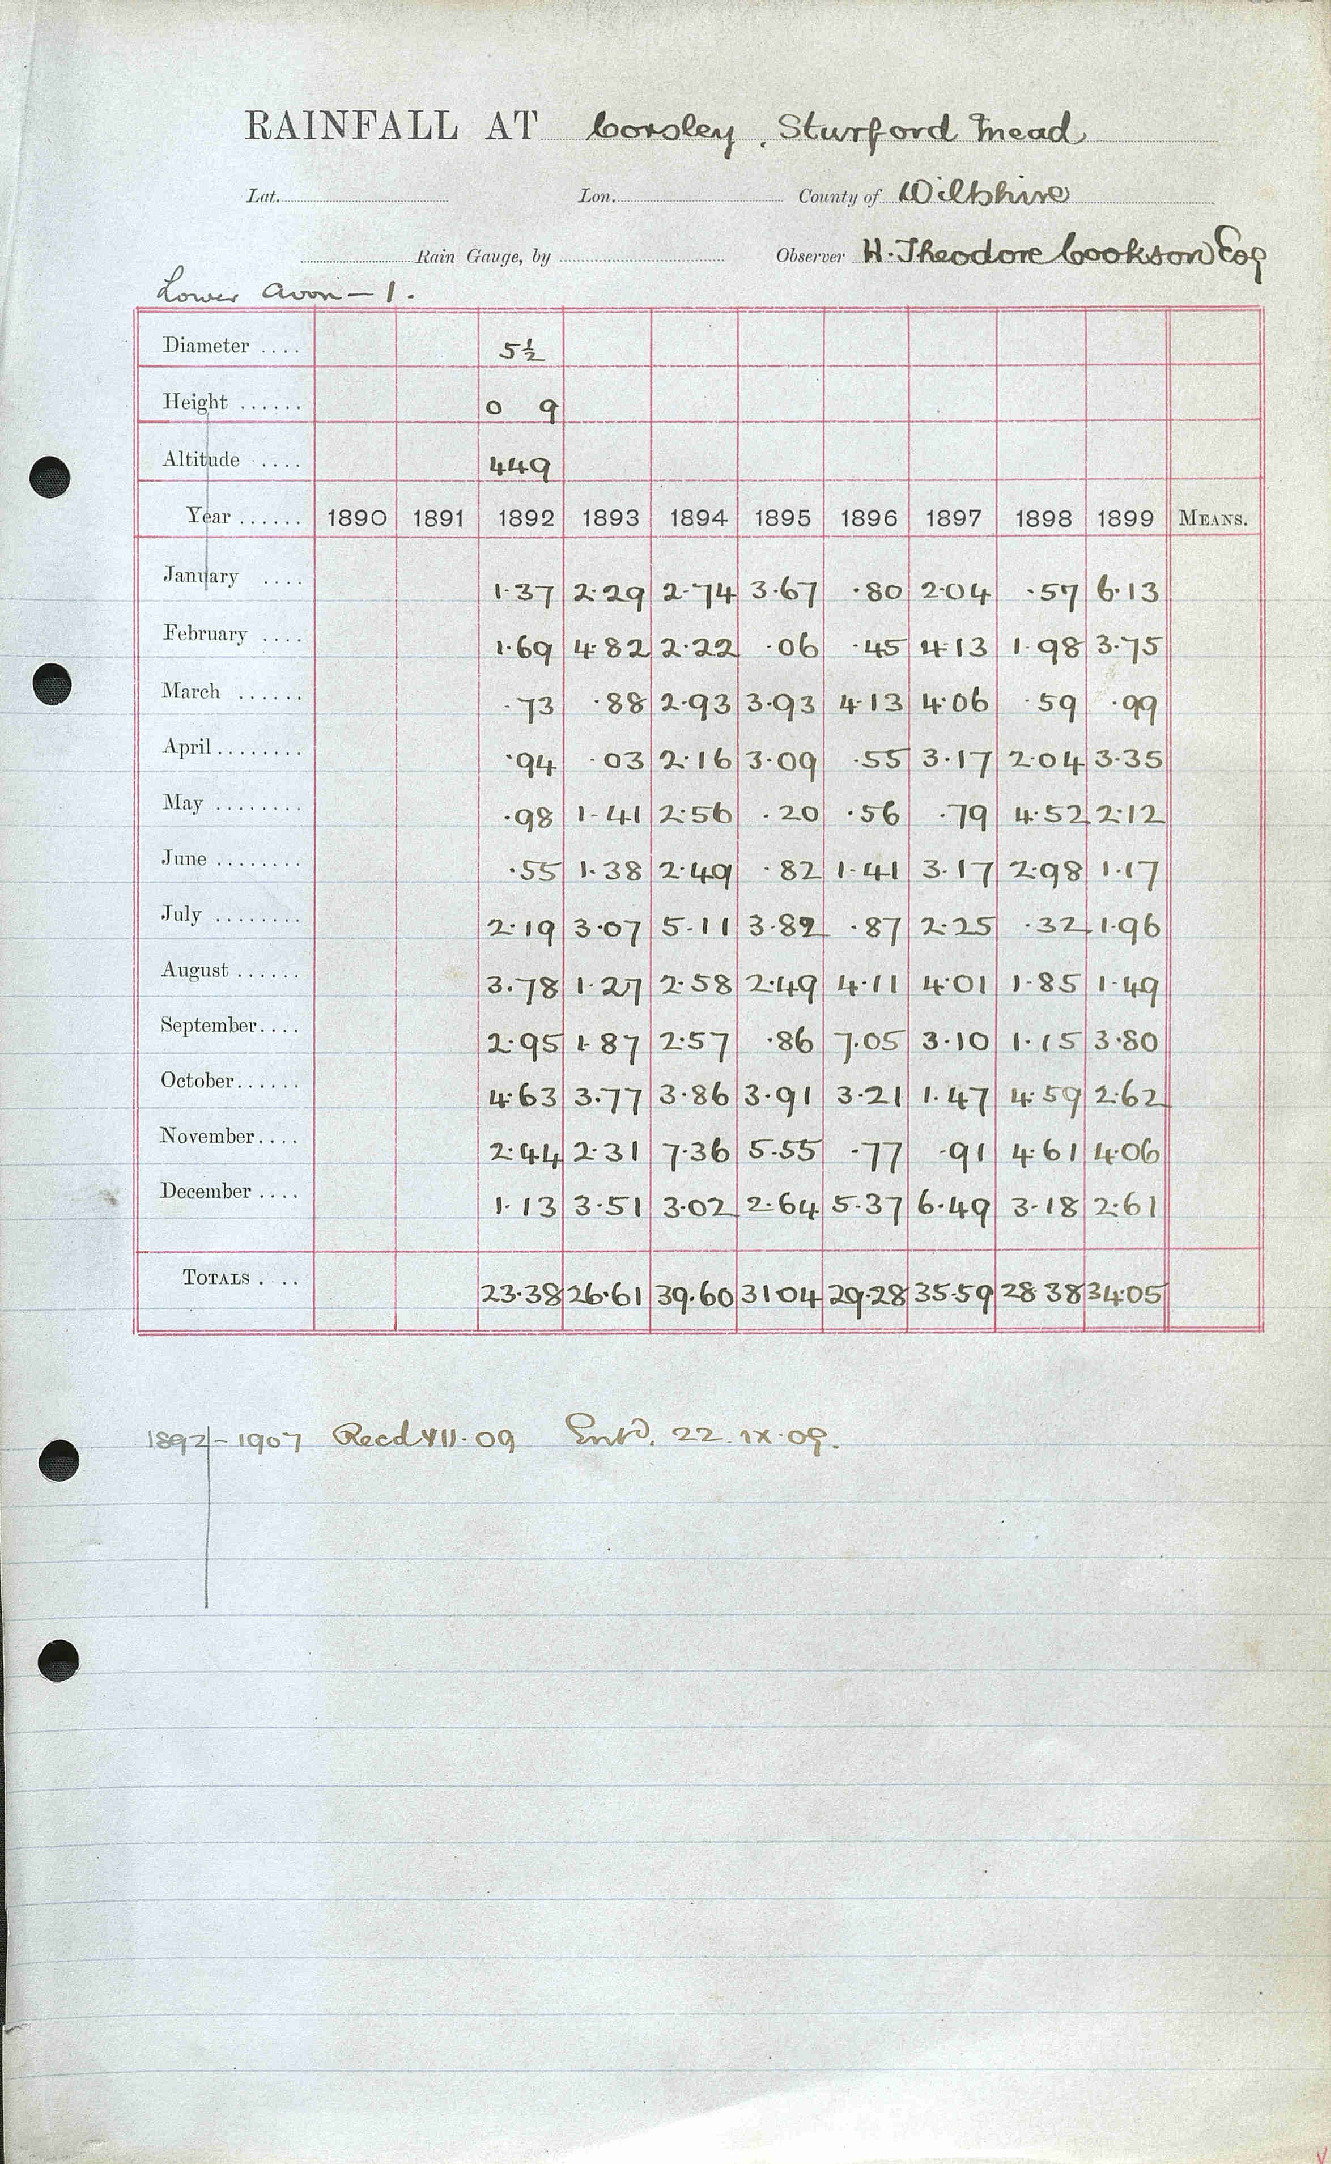 RAINFALL AT Corsley, Sturford Mead
Lat. Lon. County of Wiltshire
Rain Gauge, by Observer H. Theodore Cookson Esq
Lower Avon — 1.
Diameter .... 5½
Height ...... 0 9
Altitude .... 449
Year ...... 1890 1891 1892 1893 1894 1895 1896 1897 1898 1899 MEANS.
January .... 1.37 2.29 2.74 3.67 .80 2.04 .57 6.13
February .... 1.69 4.82 2.22 .06 .45 4.13 1.98 3.75
March ...... .73 .88 2.93 3.93 4.13 4.06 .59 .99
April ........ .94 .03 2.16 3.09 .55 3.17 2.04 3.35
May ........ .98 1.41 2.56 .20 .56 .79 4.52 2.12
June ........ .55 1.38 2.49 .82 1.41 3.17 2.98 1.17
July ........ 2.19 3.07 5.11 3.82 .87 2.25 .32 1.96
August ...... 3.78 1.27 2.58 2.49 4.11 4.01 1.85 1.49
September.... 2.95 1.87 2.57 .86 7.05 3.10 1.15 3.80
October...... 4.63 3.77 3.86 3.91 3.21 1.47 4.59 2.62
November.... 2.44 2.31 7.36 5.55 .77 .91 4.61 4.06
December .... 1.13 3.51 3.02 2.64 5.37 6.49 3.18 2.61
TOTALS . .. 23.38 26.61 39.60 31.04 29.28 35.59 28.38 34.05
1892 - 1907 Recd VII. 09 Entd. 22. IX. 09.